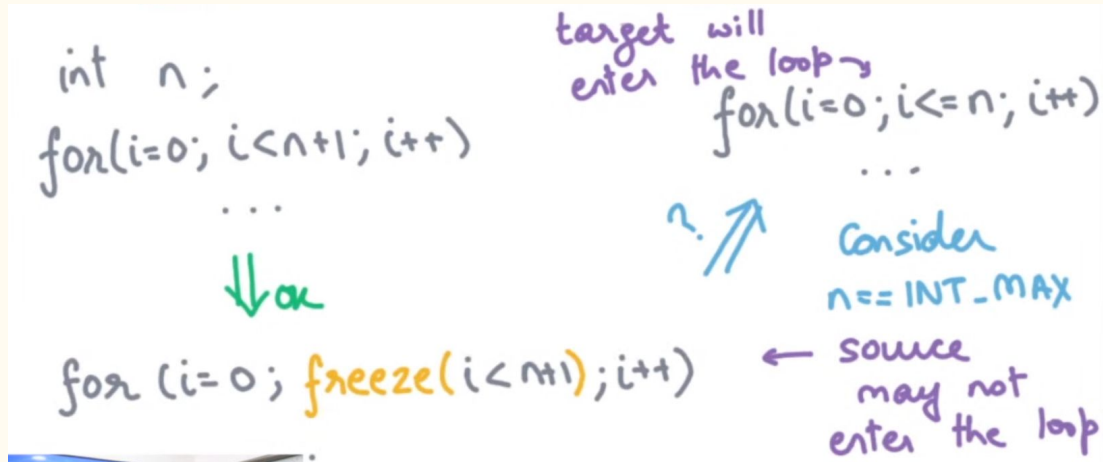 int n;
for(i=0; i<n+1; i++)
...
ok
for (i=0; freeze(i<n+1); i++)
target will
enter the loop
for(i=0; i<=n; i++)
...
?
Consider
n== INT_MAX
← source
may not
enter the loop